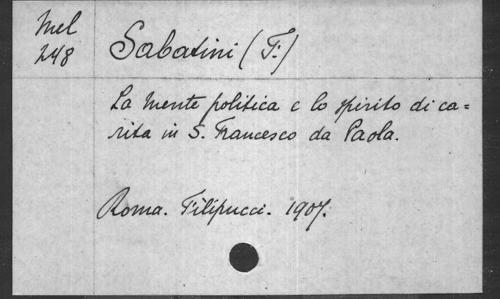 Mel
248
Sabatini (F.)
La mente politica e lo spirito di ca=
rita in S. Francesco da Paola.
Roma. Filipucci. 1907.